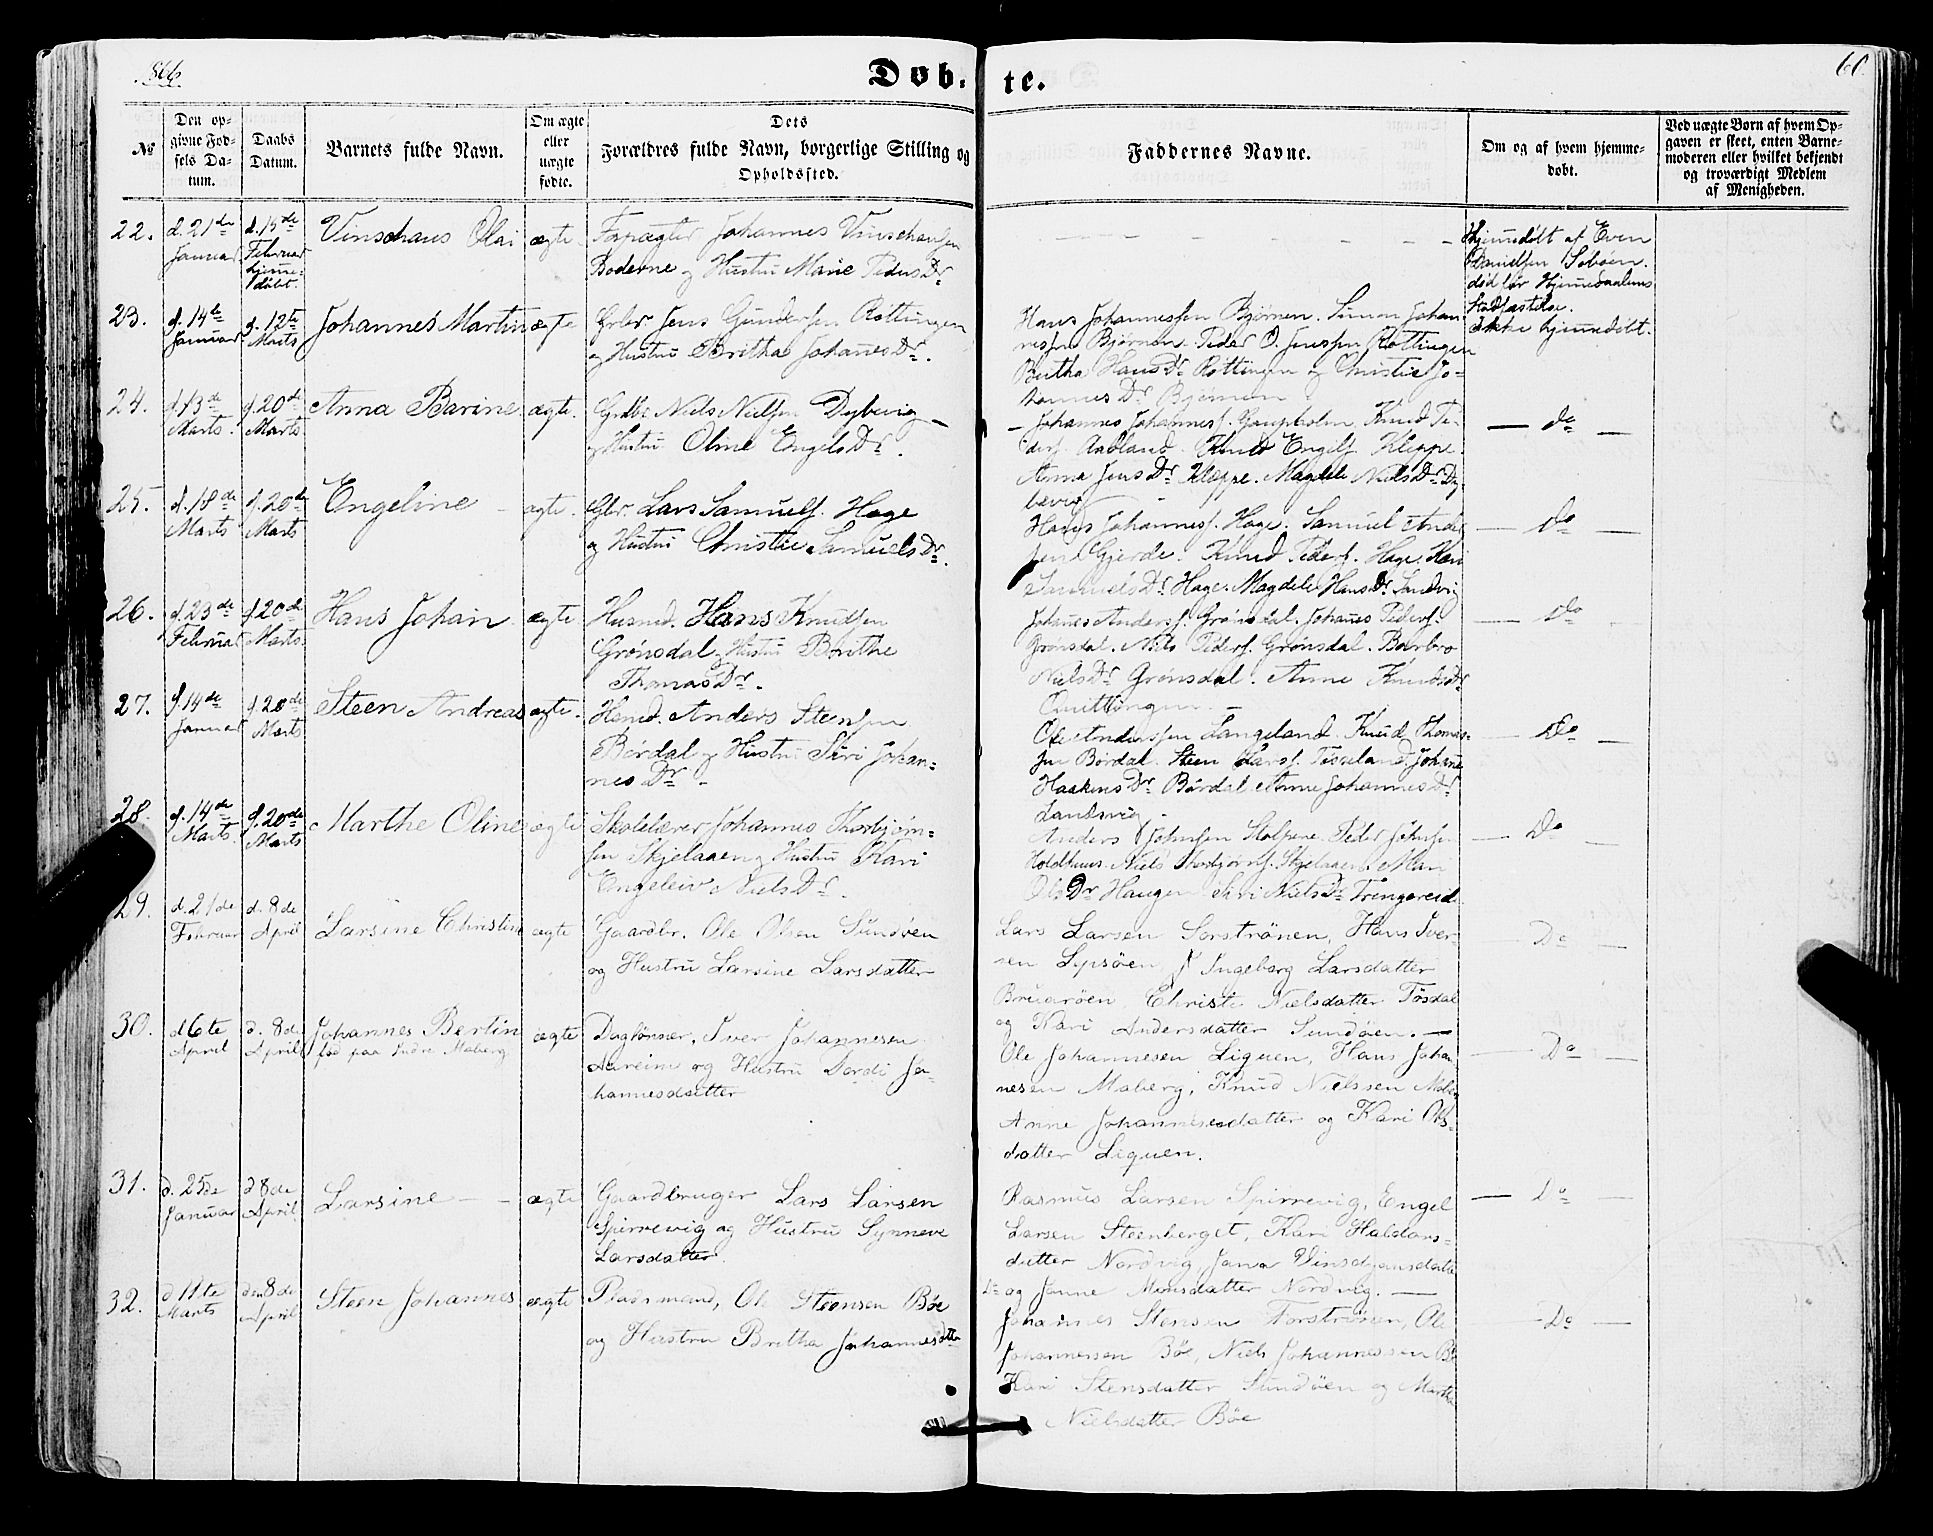 1866.
Døb-
te.
60.
№
Den op-
givne Fød-
sels Da-
tum.
Daabs
Datum.
Barnets fulde Navn.
Om ægte
eller
uægte
fødte.
Dets
Forældres fulde Navn, borgerlige Stilling og
Opholdssted.
Faddernes Navne.
Om og af hvem hjemme-
døbt.
Ved uægte Børn af hvem Op-
gaven er skeet, enten Barne-
moderen eller hvilket bekjendt
og troværdigt Medlem
af Menigheden.
22.
d. 21de
Januar
d. 15de
Februar
hjemme-
døbt.
Vinschans Olai
ægte
Forpagter Johannes Vinschansen
Boderne og Hustru Marie PedersDr.
Hjemmedøbt af Even
Danielsen
død før Hjemmedaabens
Stadfæstelse.
23.
d. 14de
Januar
d. 12te
Marts
Johannes Martin
ægte
Grbr. Jens Gundersen Røttingen
og Hustru Britha JohanesDr.
Hans Johannessen Bjørnen. Simon Johan-
nessen Bjørnen. Peder O. Jenssen Røttingen
Britha HansDr. Røttingen og Christie Jo-
hannesDr. Bjørnen
Ikke hjemmedøbt.
24.
d. 13de
Marts.
d. 20de
Marts
Anna Barine
ægte.
Grdbr. Niels Nielsen Dybevig
og Hustru Oline EngelsDr.
Johannes Johanness. Gaupholm, Knud Pe-
ders. Aadland. Knud Engels. Kleppe.
Anna JensDr. Kleppe. Magdele NielsDr. Dy-
bevig
— do —
25.
d. 18de
Marts
d. 20de
Marts
Engeline
ægte.
Gbr. Lars Samuels. Hage
og Hustru Christie SamuelsDr.
Hans Johanness. Hage. Samuel
Gjerde. Knud Peders. Hage.
SamuelsDr. Hage. Magdele HansDr. Sandvig
— do —
26.
d. 23de
Februar
d. 20de
Marts
Hans Johan
ægte
Husmd. Hans Knudsen
Grønsdal og Hustru Brithe
ThomasDr.
Johanes Anderss. Grønsdal. Johanes Peders.
Grønsdal. Nils Peders. Grønsdal. Barbro
NielsDr. Grønsdal. Anne KnudsDr.
— do
27.
d. 14de
Januar
d. 20de
Marts
Steen Andreas
ægte.
Husmd. Anders Steensen
Børdal og Hustru Siri Johan-
nesDr.
Ole Anderssen Langeland. Knud Thomas-
sen Børdal. Steen Larss. Johane
HaakensDr. Børdal Anne JohannesDr.
Landsvig
— Do —
28.
d. 14de
Marts.
d. 20de
Marts
Marthe Oline
ægte
Skolelærer Johannes Thorbjørn-
sen Skjelaaen og Hustru Kari
Engeleiv NielsDr.
Anders Johnsen Stolpene. Peder Johnsen
Holdhuus. Niels Thorbjørns. Skjelaaen. Mari
OlsDr. Haugen Siri NielsDr. Trengereid
— Do —
29.
d. 21de
Februar
d. 8de
April
Larsine Christine
ægte
Gaardbr. Ole Olsen Sundøen
og Hustru Larsine Larsdatter
Lars Larsen Forstrønen, Hans Iver-
sen Lepsøen, Ingeborg Larsdatter
Bruarøen, Christi Nielsdatter Tøsdal
og Kari Andersdatter Sundøen.
— Do —
30.
d 6te
April
d. 8de
April
Johannes Bertin
fød paa Indre Moberg
ægte
Dagtønner, Iver Johannesen
Aareim og Hustru Dordi Jo-
hannesdatter
Ole Johannesen Liquen, Hans Johan-
nesen Moberg, Knud Nielssen
Anne Johannesesdatter og Kari Ols-
datter Liquen.
— Do —
31.
d. 25de
Januar
d 8de
April
Larsine
ægte
Gaardbruger Lars Larsen
Spirrevig og Hustru Synneve
Larsdatter.
Rasmus Larsen Spirrevig, Engel
Larsen Steenberget, Kari Haldors-
datter Nordvig, Jana Vinsdjansdatter
Do og Janne Monsdatter Nordvig.
— Do —
32.
d 11te
Marts
den 8de
April
Steen Johannes
ægte
Pladsmand, Ole Steensen Bøe
og Hustru Britha Johannesdtr
Johannes Stensen Forstrøen, Ole
Johannessen Bøe, Niels Johannessen Bø
Kari Stensdatter Sundøen og Marthe
Nielsdatter Bøe
— Do —